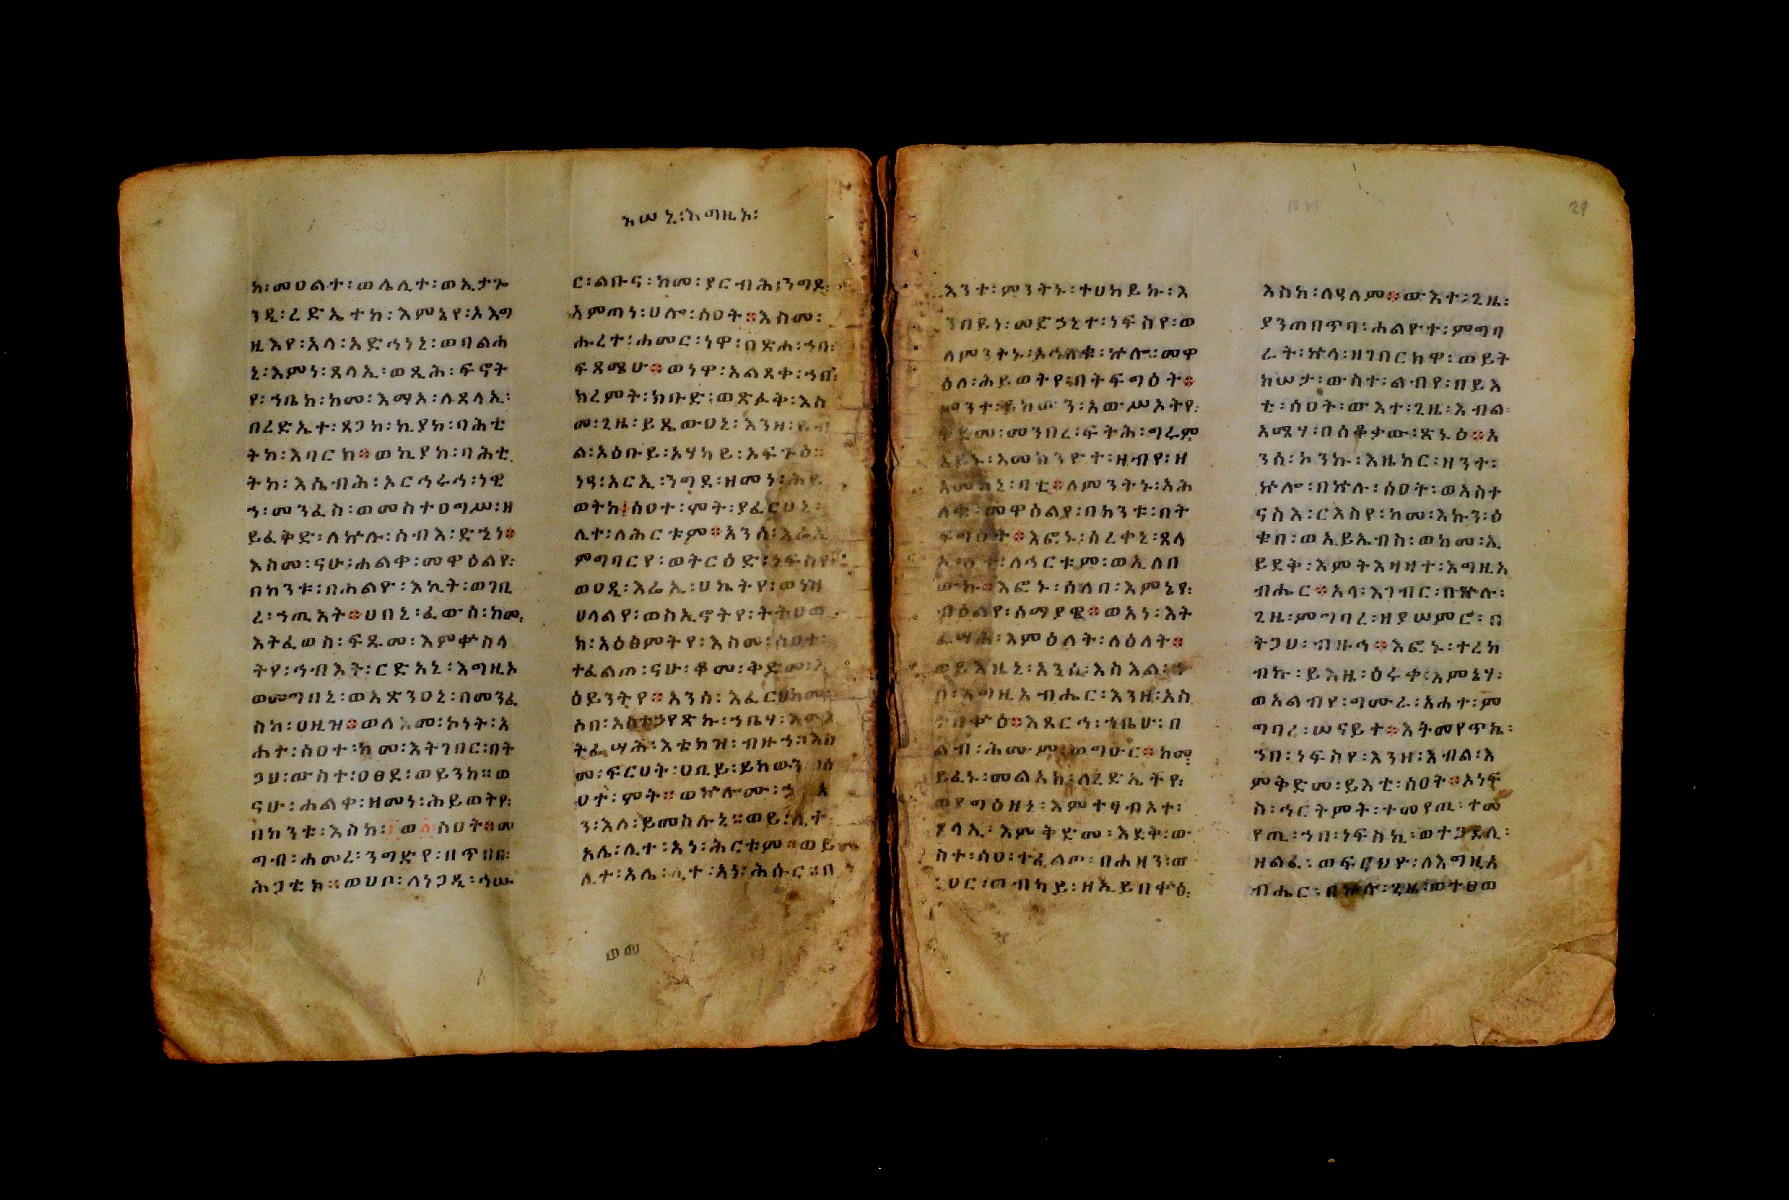 አሠኒ፡እግዚአ፡
ክ፡መዐልተ፡ወሌሊተ፡ወኢታጐ
ንዲ፡ረድኤተከ፡እምኔየ፡አእግ
ዚእየ፡አላ፡አድኅነኒ፡ወባልሐ
ኒ፡እምነ፡ጸላኢ፡ወጺሕ፡ፍኖት
የ፡ኀቤከ፡ከመ፡እማእ፡ለጸላኢ፡
በረድኤተ፡ጸጋከ፡ኪያከ፡ባሕቲ
ትከ፡እባርክ፨ወኪያከ፡ባሕቲ
ትከ፡እሴብሕ፡ኦርኅሩኅ፡ነዊ
ኀ፡መንፈስ፡ወመስተዐግሥ፡ዘ
ይፈቅድ፡ለኵሉ፡ሰብእ፡ድኂነ፨
እስመ፡ናሁ፡ሐልቀ፡መዋዕልየ፡
በከንቱ፡በሐልዮ፡እኪት፡ወገቢ
ረ፡ኀጢአት፨ሀበኒ፡ፈውስ፡ከመ፡
እትፈወስ፡ፍጹመ፡እምቍስላ
ትየ፡ኅብእት፡ርድአኒ፡እግዚኦ
ወመግበኒ፡ወአጽንዐኒ፡በመንፈ
ስከ፡ሀዚዝ፨ወለእመ፡ኮነት፡አ
ሐተ፡ሰዐተ፡ከመ፡እትገበር፡በት
ጋህ፡ውስተ፡ዐፀደ፡ወይንከ።ወ
ናሁ፡ሐልቀ፡ዘመነ፡ሕይወትየ፡
በከንቱ፡እስከ፡ ወ ሰዐት፨መ
ግብ፡ሐመረ፡ንግድየ፡በጥበበ፡
ሕጋቲከ፨ወሀቦ፡ለነጋዲ፡ኅሡ
ር፡ልቡና፡ከመ፡ያርብሕ፡ንግደ፡
እምጠነ፡ሀሎ፡ሰዐት፨እስመ፡
ሑረተ፡ሐመር፡ነዋ፡በጽሐ፡ኀበ፡
ፍጻሜሁ፨ወነዋ፡አልጸቀ፡ኀበ፡
ክረምት፡ክቡድ፡ወጽፉቅ፡እስ
መ፡ጊዜ፡ይጼውዐኒ፡እንዘ፡ይብ
ል፡አዕቡይ፡አሃካይ፡አፍጕዕ።
ነዓ፡አርኢ፡ንግደ፡ዘመነ፡ሕይ
ወትከ፡ሰዐተ፡ሞት፡ያፈርሀኒ፡
ሊተ፡ለሕርቱም፨አንሰ፡እሬኢ
ምግባርየ፡ወትርዕድ፡ነፍስየ፡
ወዐዲ፡እሬኢ፡ሀኬትየ፡ወነዝ
ሀላልየ፡ወስኢኖትየ፡ትትሀወ
ክ፡አዕፅምትየ፡እስመ፡ሰዐተ፡
ተፈልጦ፡ናሁ፡ቆመ፡ቅድመ፡አ
ዕይንትየ፨አንሰ፡እፈርህ
ሶበ፡አስተኃየጽኩ፡ኀቤሃ፡
ትፌሣሕ፡እቴክዝ፡ብዙኀ፨እስ
መ፡ፍርሀት፡ዐቢይ፡ይከውን
ሀተ፡ሞት፨ወኵሎሙ፡
ን፡እለ፡ይመስሉኒ፨ወይ፡ሊተ
አሌ፡ሊተ፡አነ፡ሕርቱም፨ወይ
ሊተ፡አሌ፡ሊተ፡አነ፡ሕሱር፨በ
ወመ
እንተ፡ምንትኑ፡ተሀከይኩ፡እ
ንበይነ፡መድኃኒተ፡ነፍስየ፡ወ
ለምንትኑ፡አኅለቁ፡ኵሎ፡መዋ
ዕለ፡ሕይወትየ፡በትፍግዕት፨
ምንተ፡ይከውን፡አውሥኦትየ፡
ቅድመ፡መንበረ፡ፍትሕ፡ግሩም
ለምንትኑ፡አሕ
ለቁ፡መዋዕልየ፡በከንቱ፡በት
ፍግዕት፨እፎኑ፡ሰረቀኒ፡ጸላ
ኢ፡ ለኅርቱም፡ወኢለበ
ውኩ፨እፎኑ፡ሰለበ፡እምኔየ፡
ብዕልየ፡ሰማያዊ፨ወአነ፡እት
ፌሣሕ፡እምዕለት፡ለዕለት፨
ወይእዜኒ፡እንሲ፡እስእል፡
በ፡እግዚአብሔር፡እንዘ፡አስ
ተበቍዕ፨እጸርኅ፡ኀቤሁ፡በ
ልብ፡ሕሙም፡ወግዑር፨ከመ
ይፈኑ፡መልአከ፡ለረድኤትየ፡
ወያግዕዘኒ፡እምተፃብኦተ፡
ጸላኢ፡እምቅድመ፡እደቅ፡ው
ስተ፡ሰዐ፡ተፈልጦ፡በሐዘን፡ወ
ገዐር፡ወብካይ፡ዘኢይበቍዕ፡
29
እስከ፡ለዓለም፨ውእተ፡ጊዜ፡
ያንጠበጥባ፡ሐልዮተ፡ምግባ
ራት፡ኵላ፡ዘገበርክዋ፡ወይት
ከሠታ፡ውስተ፡ልብየ፡በይእ
ቲ፡ሰዐት፡ውእተ፡ጊዜ፡እብል፡
አሜሃ፡በሰቆታው፡ጽኑዕ፨አ
ንሰ፡ኮንኩ፡እዜከር፡ዘንተ፡
ኵሎ፡በኵሉ፡ሰዐት፡ወአስተ
ናስእ፡ርእስየ፡ከመ፡እኩን፡ዕ
ቁበ፡ወኢይኤብስ፡ወከመ፡ኢ
ይደቅ፡እምትእዛዛተ፡እግዚአ
ብሔር፨አላ፡እገብር፡በኵሉ፡
ጊዜ፡ምግባረ፡ዘያሠምሮ፡በ
ትጋህ፡ብዙኅ፨እፎኑ፡ተረከ
ብኩ፡ይእዜ፡ዕሩቀ፡እምኔሃ፡
ወአልብየ፡ግሙራ፡አሐተ፡ም
ግባረ፡ሠናይተ፨እትመየጥኬ፡
ኀበ፡ነፍስየ፡እንዘ፡እብል፡እ
ምቅድመ፡ይእቲ፡ሰዐት፨ኦነፍ
ስ፡ኅርትምት፡ተመየጢ፡ተመ
የጢ፡ኀበ፡ነፍስኪ፡ወተጋደሊ፡
ዘልፈ፡ወፍርህዮ፡ለእግዚአ
ብሔር፡በኵሉ፡ጊዜ፡ወተፀወ